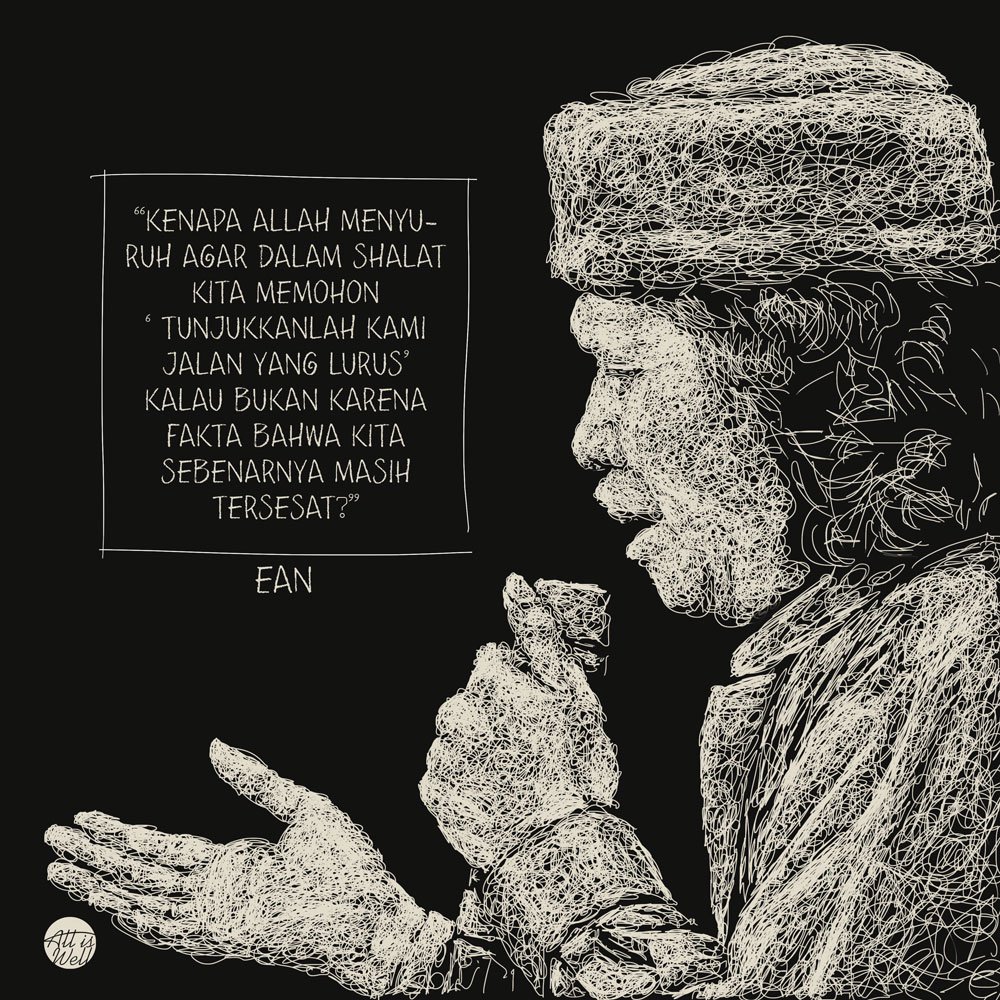 “KENAPA ALLAH MENYU-
RUH AGAR DALAM SHALAT
KITA MEMOHON
‘ TUNJUKKANLAH KAMI
JALAN YANG LURUS’
KALAU BUKAN KARENA
FAKTA BAHWA KITA
SEBENARNYA MASIH
TERSESAT?”
EAN
All is
Well